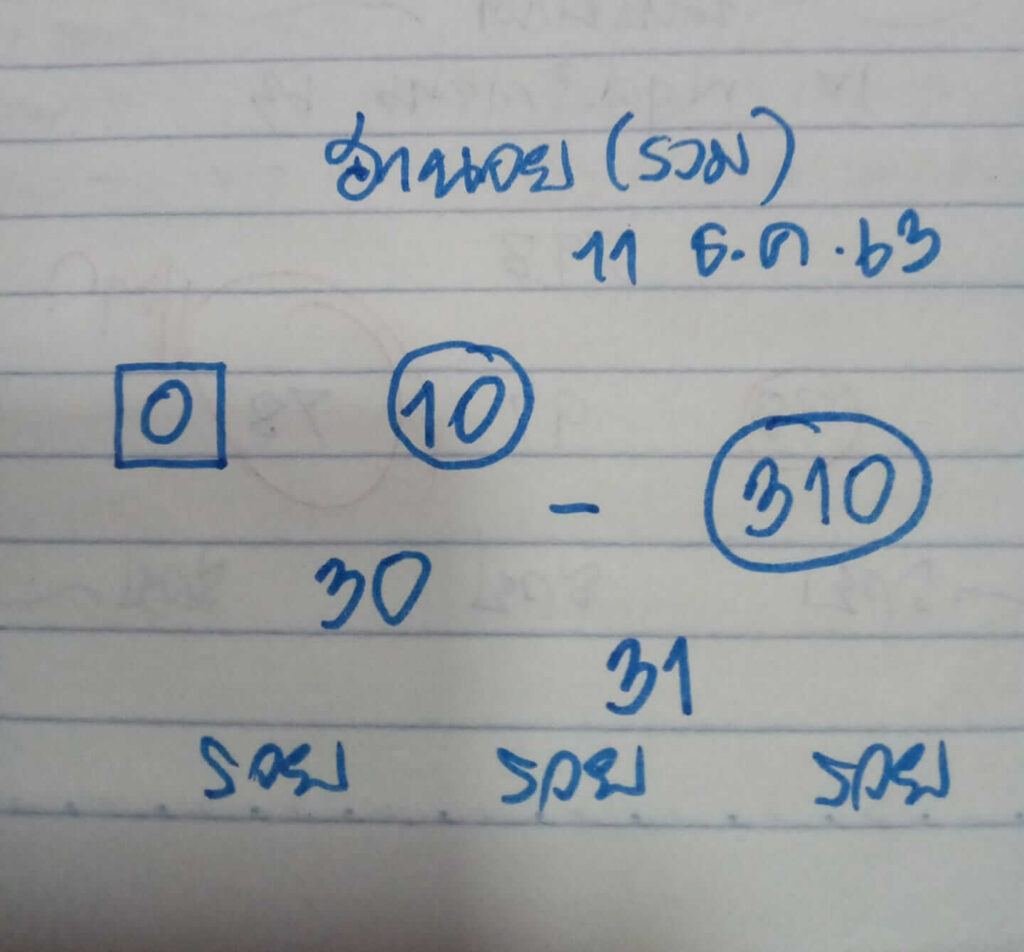 ฮานอย (รวม)
11 ธ.ค.63
0 10
- 310
30
31
รวย รวย รวย